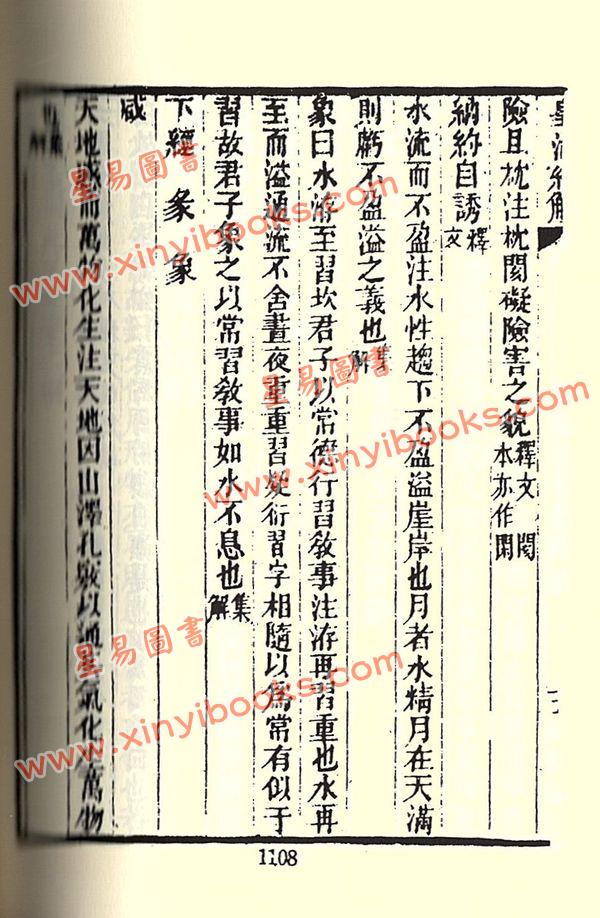 險且枕注枕閡礙險害之貌釋文閡本亦作閑
納約自誘釋文
水流而不盈注水性趨下不盈溢崖岸也月者水精月在天滿
則虧不盈溢之義也集解
象曰水洊至習坎君子以常德行習敎事注洊再習重也水再
至而溢通流不舍晝夜重重習疑衍習字相隨以爲常有似于
習故君子象之以常習敎事如水不息也集解
下經 彖 象
咸
天地感而萬物化生注天地因山澤孔竅以通其氣化生萬物
也集解
1108
星易圖書
www.xinyibooks.com
星易圖書
www.xinyibooks.com
星易圖書
www.xinyibooks.com